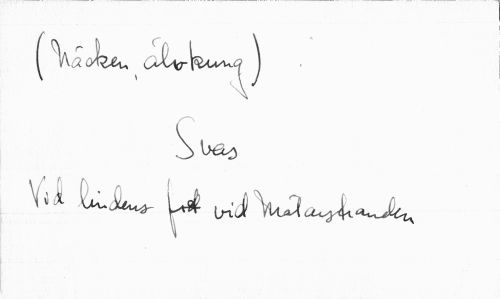 (Näcken, älvkung)
Svas
Vid lindens fot vid Mälarstranden